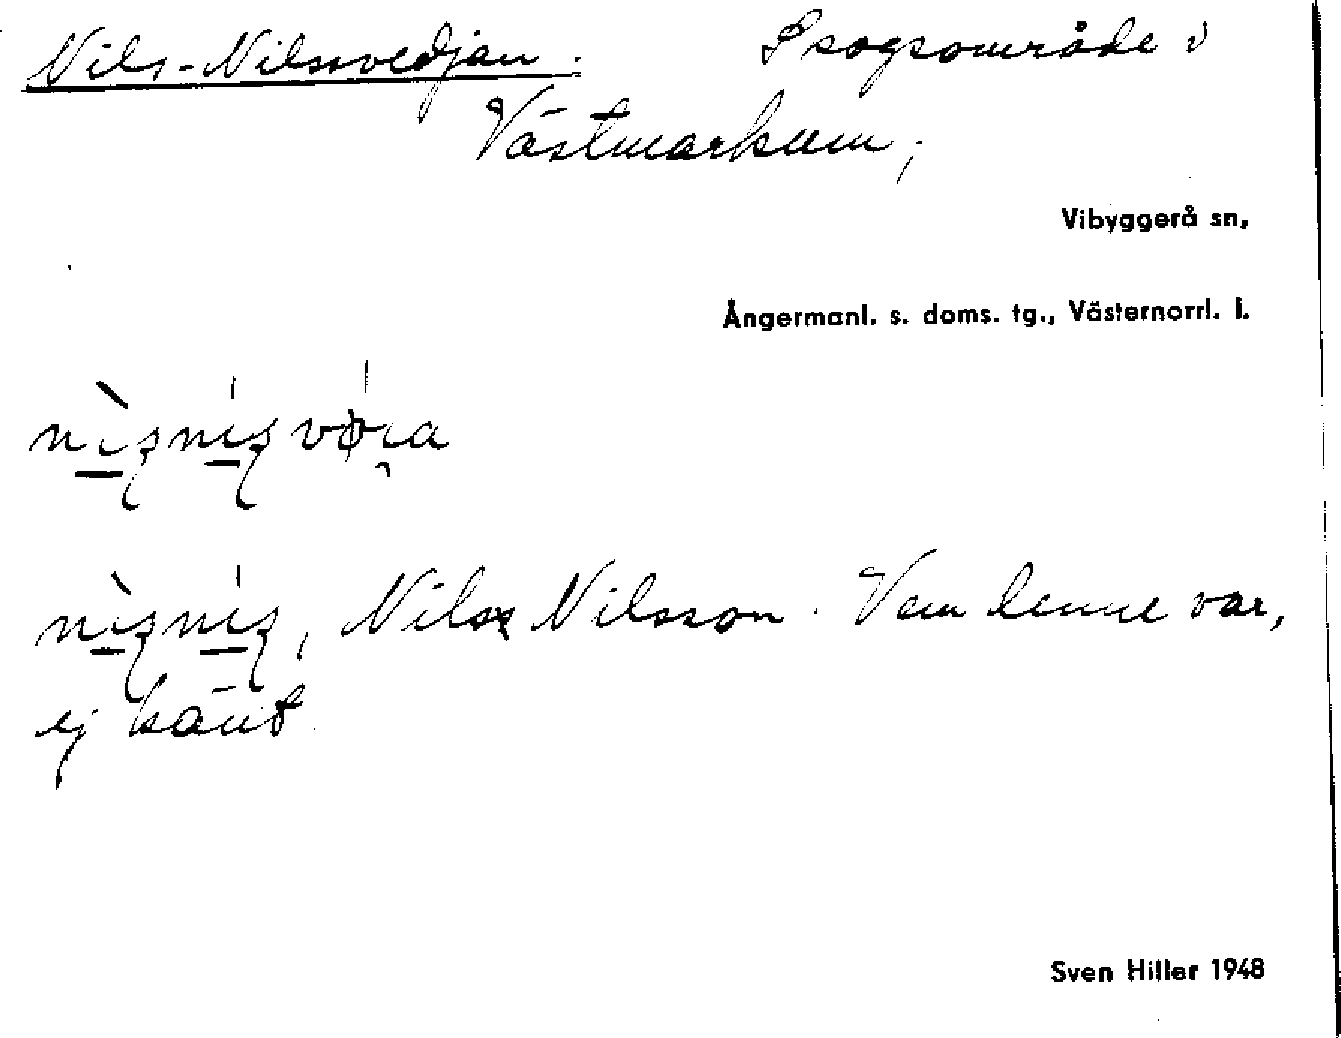 Nils-Nilssvedjan. Skogsområde i
Västmarkum,
Vibyggerå sn,
Ångermanl. s. doms. tg., Västernorrl. l.
Nils Nilsson. Vem denne var,
ej känt
Sven Hiller 1948